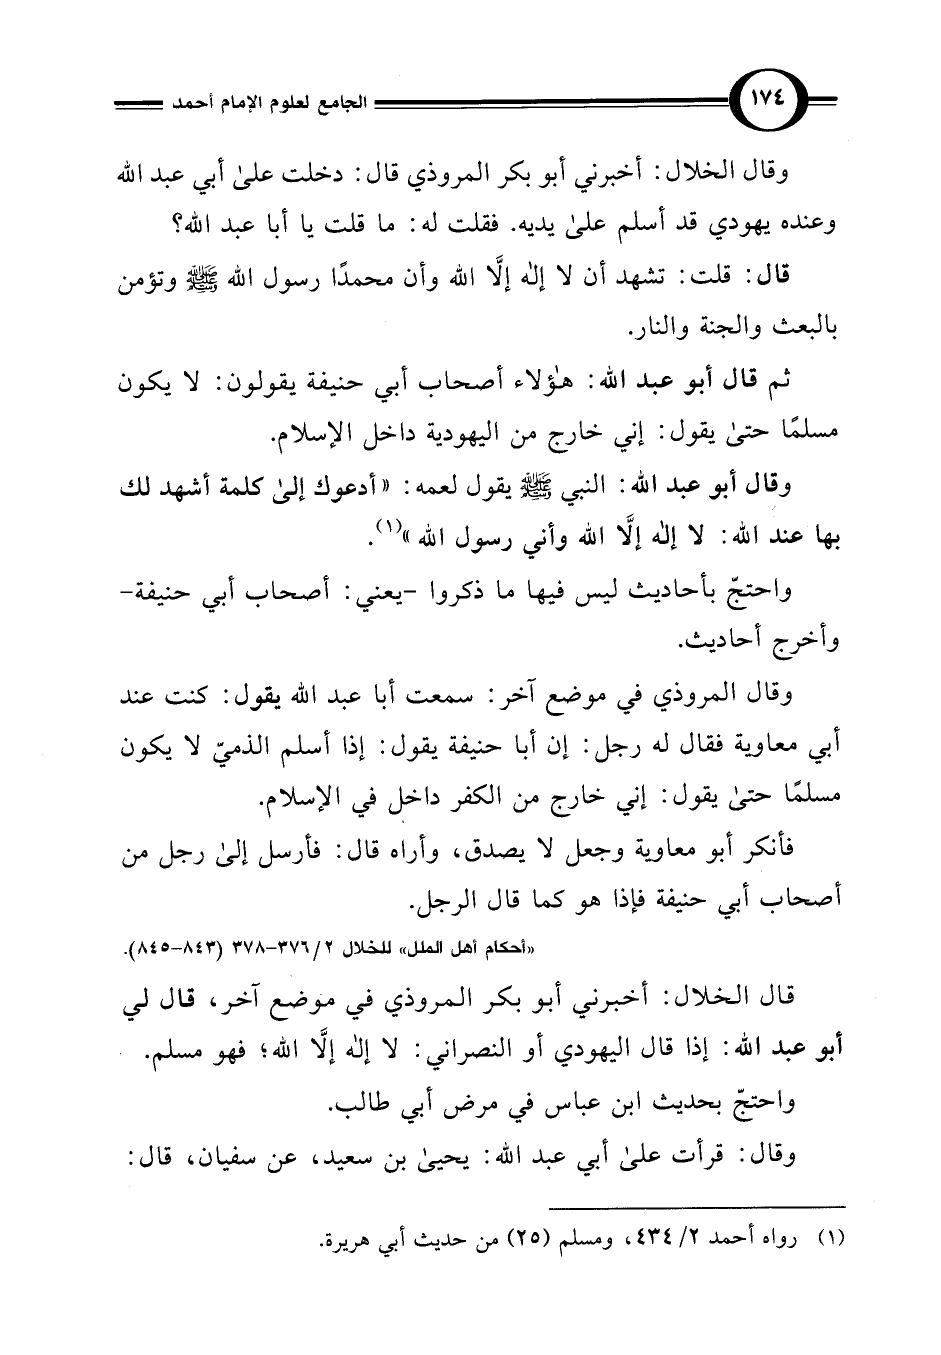 ١٧٤ الجامع لعلوم الإمام أحمد
وقال الخلال: أخبرني أبو بكر المروذي قال: دخلت علىٰ أبي عبد الله
وعنده يهودي قد أسلم علىٰ يديه. فقلت له: ما قلت يا أبا عبد الله؟
قال: قلت: تشهد أن لا إلٰه إلَّا الله وأن محمدًا رسول الله ﷺ وتؤمن
بالبعث والجنة والنار.
ثم قال أبو عبد الله: هؤلاء أصحاب أبي حنيفة يقولون: لا يكون
مسلمًا حتىٰ يقول: إني خارج من اليهودية داخل الإسلام.
وقال أبو عبد الله: النبي ﷺ يقول لعمه: «أدعوك إلىٰ كلمة أشهد لك
بها عند الله: لا إلٰه إلَّا الله وأني رسول الله»(١).
واحتجّ بأحاديث ليس فيها ما ذكروا -يعني: أصحاب أبي حنيفة-
وأخرج أحاديث.
وقال المروذي في موضع آخر: سمعت أبا عبد الله يقول: كنت عند
أبي معاوية فقال له رجل: إن أبا حنيفة يقول: إذا أسلم الذميّ لا يكون
مسلمًا حتىٰ يقول: إني خارج من الكفر داخل في الإسلام.
فأنكر أبو معاوية وجعل لا يصدق، وأراه قال: فأرسل إلىٰ رجل من
أصحاب أبي حنيفة فإذا هو كما قال الرجل.
«أحكام أهل الملل» للخلال ٢/ ٣٧٦-٣٧٨ (٨٤٣-٨٤٥).
قال الخلال: أخبرني أبو بكر المروذي في موضع آخر، قال لي
أبو عبد الله: إذا قال اليهودي أو النصراني: لا إلٰه إلَّا الله؛ فهو مسلم.
واحتجّ بحديث ابن عباس في مرض أبي طالب.
وقال: قرأت علىٰ أبي عبد الله: يحيىٰ بن سعيد، عن سفيان، قال:
(١) رواه أحمد ٢/ ٤٣٤، ومسلم (٢٥) من حديث أبي هريرة.